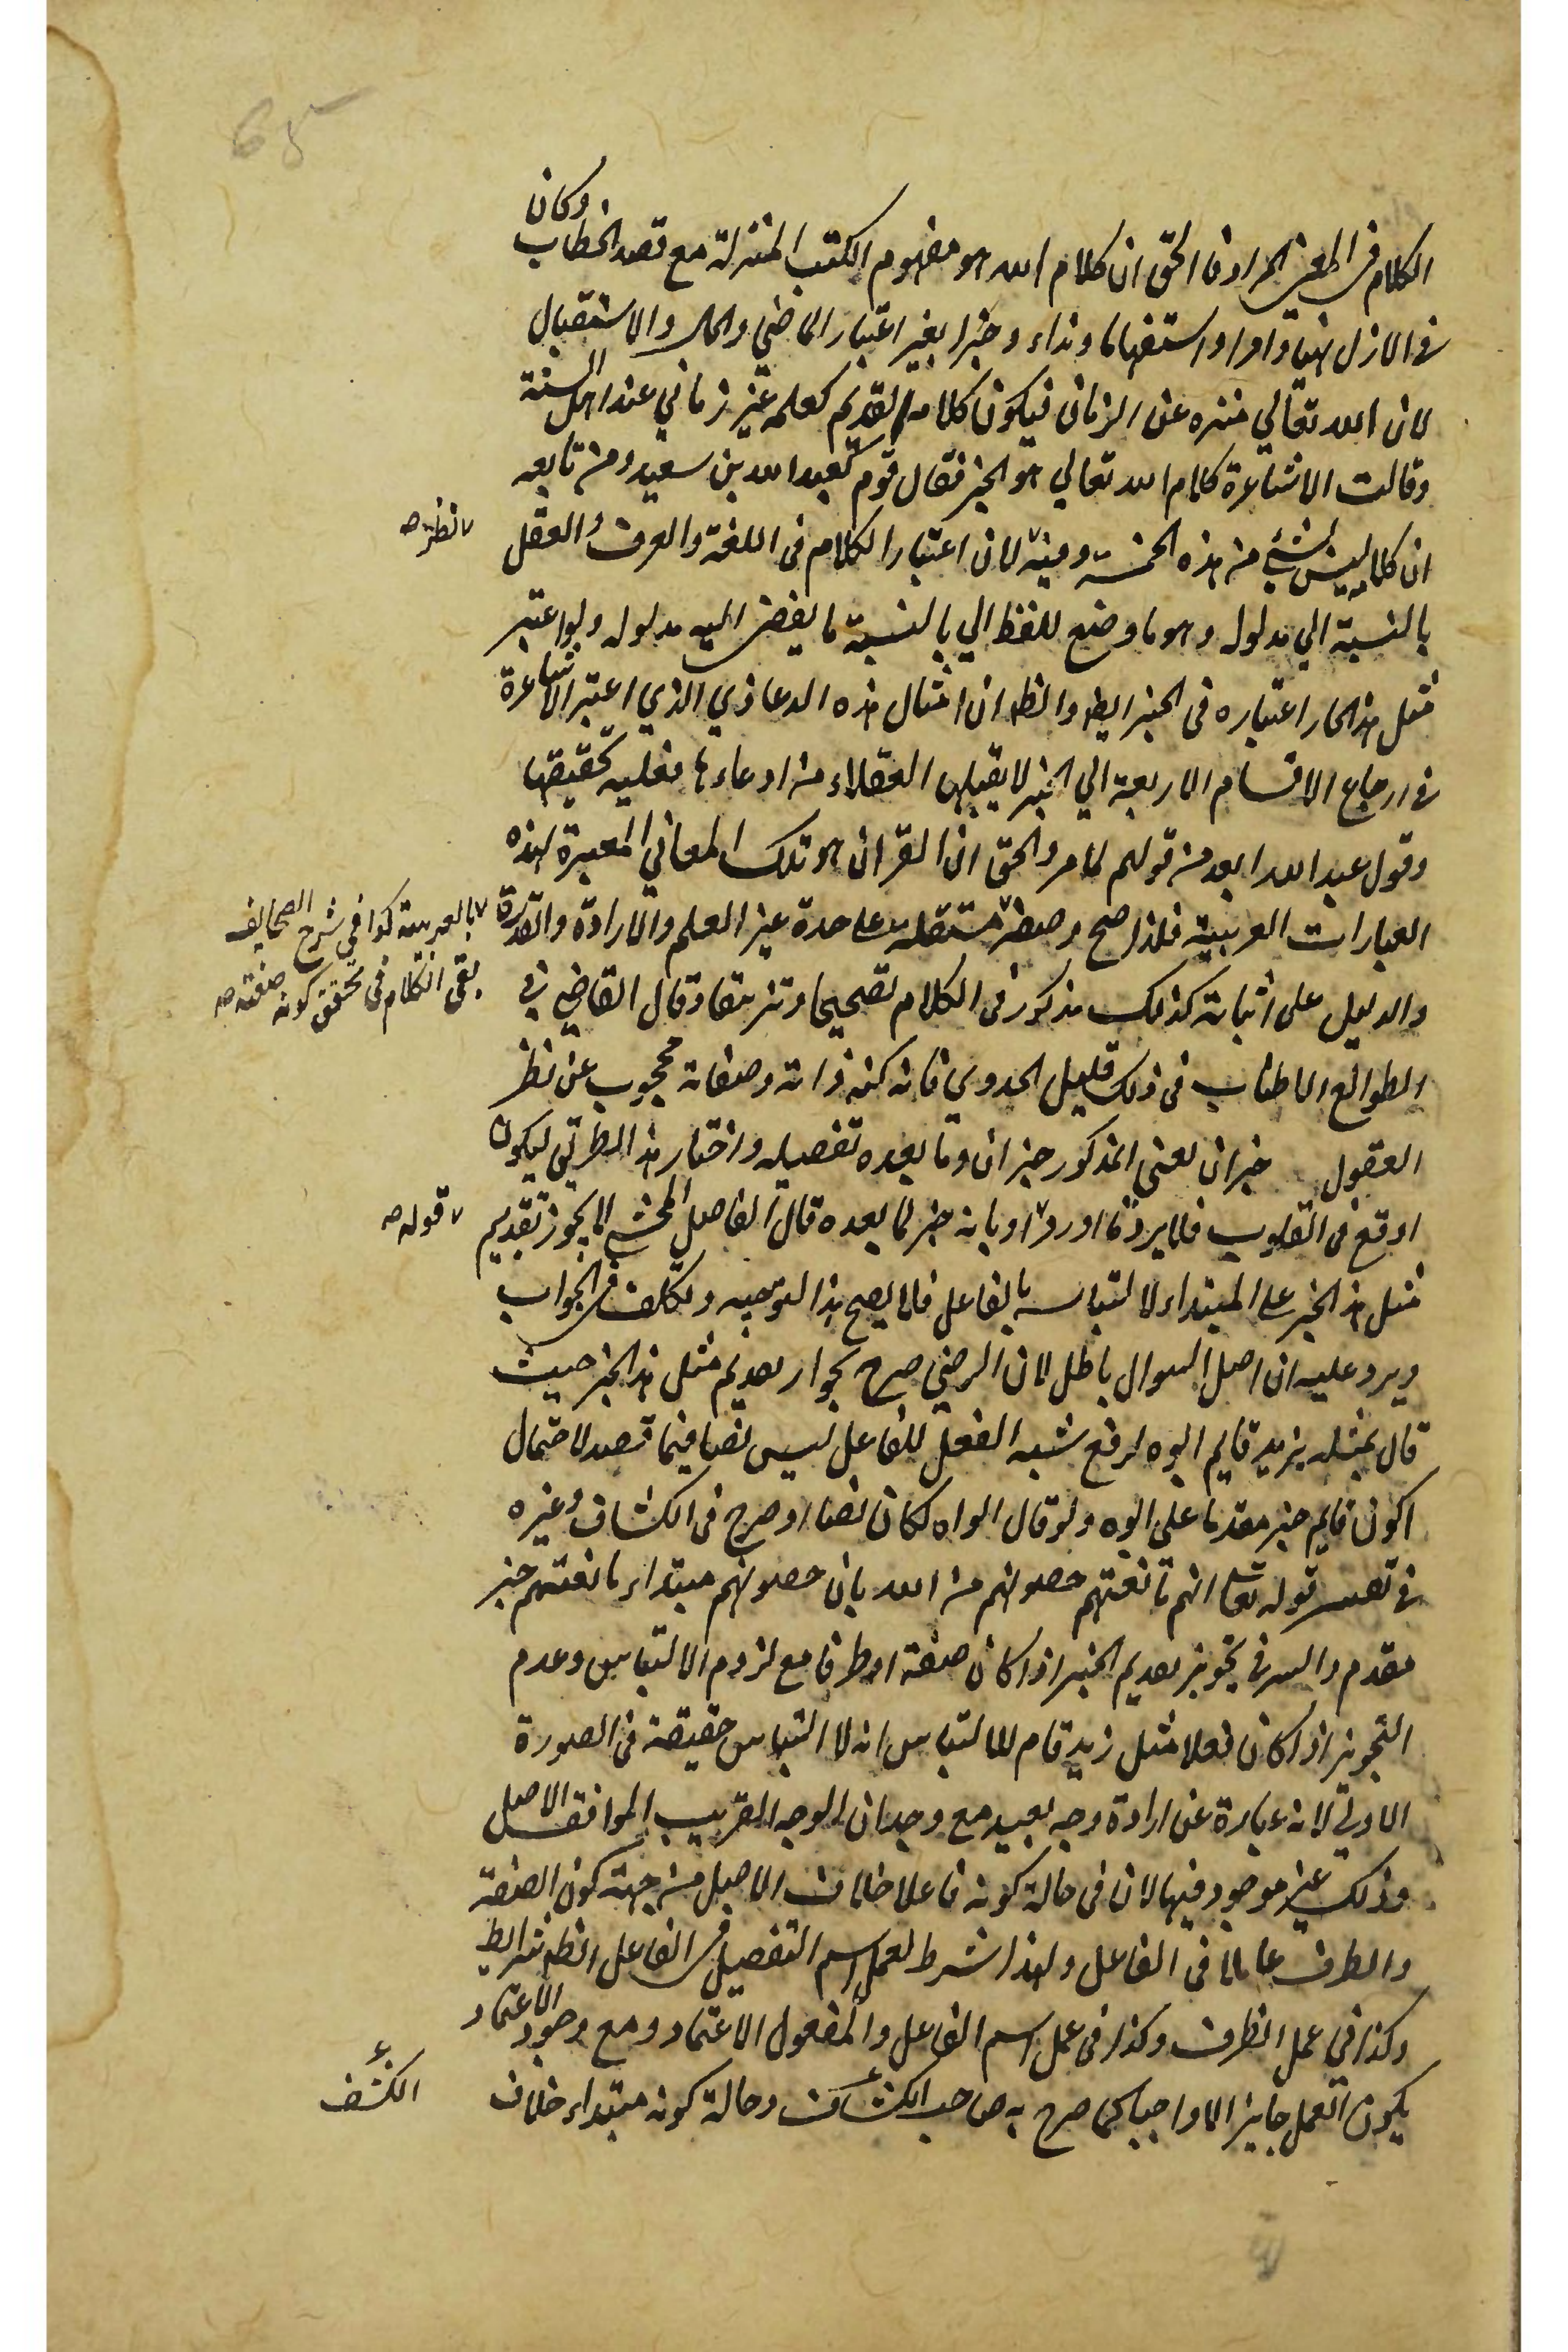 65
الكلام في المعنى المراد فالحق ان كلام الله هو مفهوم الكتب المنزلة مع قصد الخطاب وكان
في الازل نهيا وامرا واستفهاما ونداء وخبرا بغير اعتبار الماضي والحال والاستقبال
لان الله تعالي منزه عن الزمان فيكون كلامه القديم كعلمه غير زماني عند اهل السنة
وقالت الاشاعرة كلام الله تعالي هو الخبر فقال قوم كعبد الله بن سعيد ومن تابعه
ان كلامه ليس بشئ من هذه الخمسة وفيه لان اعتبار الكلام في اللغة والعرف والعقل
نظر صح
بالنسبة الي مدلول وهو ما وضع اللفظ الي بالنسبة ما يفضى اليه مدلوله ولو اعتبر
مثل هذا لجاز اعتباره في الخبر ايضا والظ ان امثال هذه الدعاوي الذي اعتبر الاشاعرة
في ارجاع الاقسام الاربعة الي الخبر لا يقبلها العقلاء من ادعاءها فعليه تحقيقها
وقول عبد الله ابعد من قولهم لما مر والحق ان القران هو تلك المعاني المعبرة بهذه
العبارات العربية فلذا صح وصفه مستقلة على حدة غير العلم والارادة والقدرة
بالعربية كذا في شرح الصحايف
بقي الكلام في تحقق كونه صفته صح
والدليل على اثباته كذلك مذكور في الكلام تصحيحا وتزييفا وقال القاضي في
الطوالع الاطناب في ذلك قليل الجدوي فانه كنه ذاته وصفاته محجوب عن نظر
العقول خبران يعنى المذكور خبر ان وما بعده تفصيله واختار هذا الطريق ليكون
اوقع في القلوب فلا يرد ما اورد او بانه خبر لما بعده قال الفاضل المحشي لا يجوز تقديم
قوله صح
مثل هذا الخبر على المبتداء لالتباسه بالفاعل فلا يصح هذا التوجيه وتكلف في الجواب
ويرد عليه ان اصل السوال باطل لان الرضي صرح بجواز تقديم مثل هذا الخبر حيث
قال بمثله بزيد قايم ابوه لرفع شبه الفعل للفاعل ليس نصا فيما قصد لاحتمال
كون قايم خبر مقدما على ابوه ولو قال ابواه لكان نصا او صرح في الكشاف وغيره
في تفسير قوله تعا انهم مانعتهم حصونهم من الله بان حصونهم مبتداء مانعتهم خبر
مقدم والسر في تجويز تقديم الخبر اذا كان صفة او ظرفا مع لزوم الالتباس وعدم
التجويز اذا كان فعلا مثل زيد قام للالتباس انه لا التباس حقيقة في الصورة
الاولي لانه عبارة عن ارادة وجه بعيد مع وجدان الوجه القريب الموافق الاصل
وذلك غير موجود فيها لان في حالة كونه فاعلا خلاف الاصل من جهة كون الصفة
والظرف عاملا في الفاعل ولهذا شرط لعمل اسم التفضيل في الفاعل الظ شرايط
وكذا في عمل الظرف وكذا في عمل اسم الفاعل والمفعول الاعتماد ومع وجود الاعتماد
يكون العمل جايزا لا واجبا كما صرح به صاحب الكشاف وحالة كونه مبتداء خلاف
الكشف